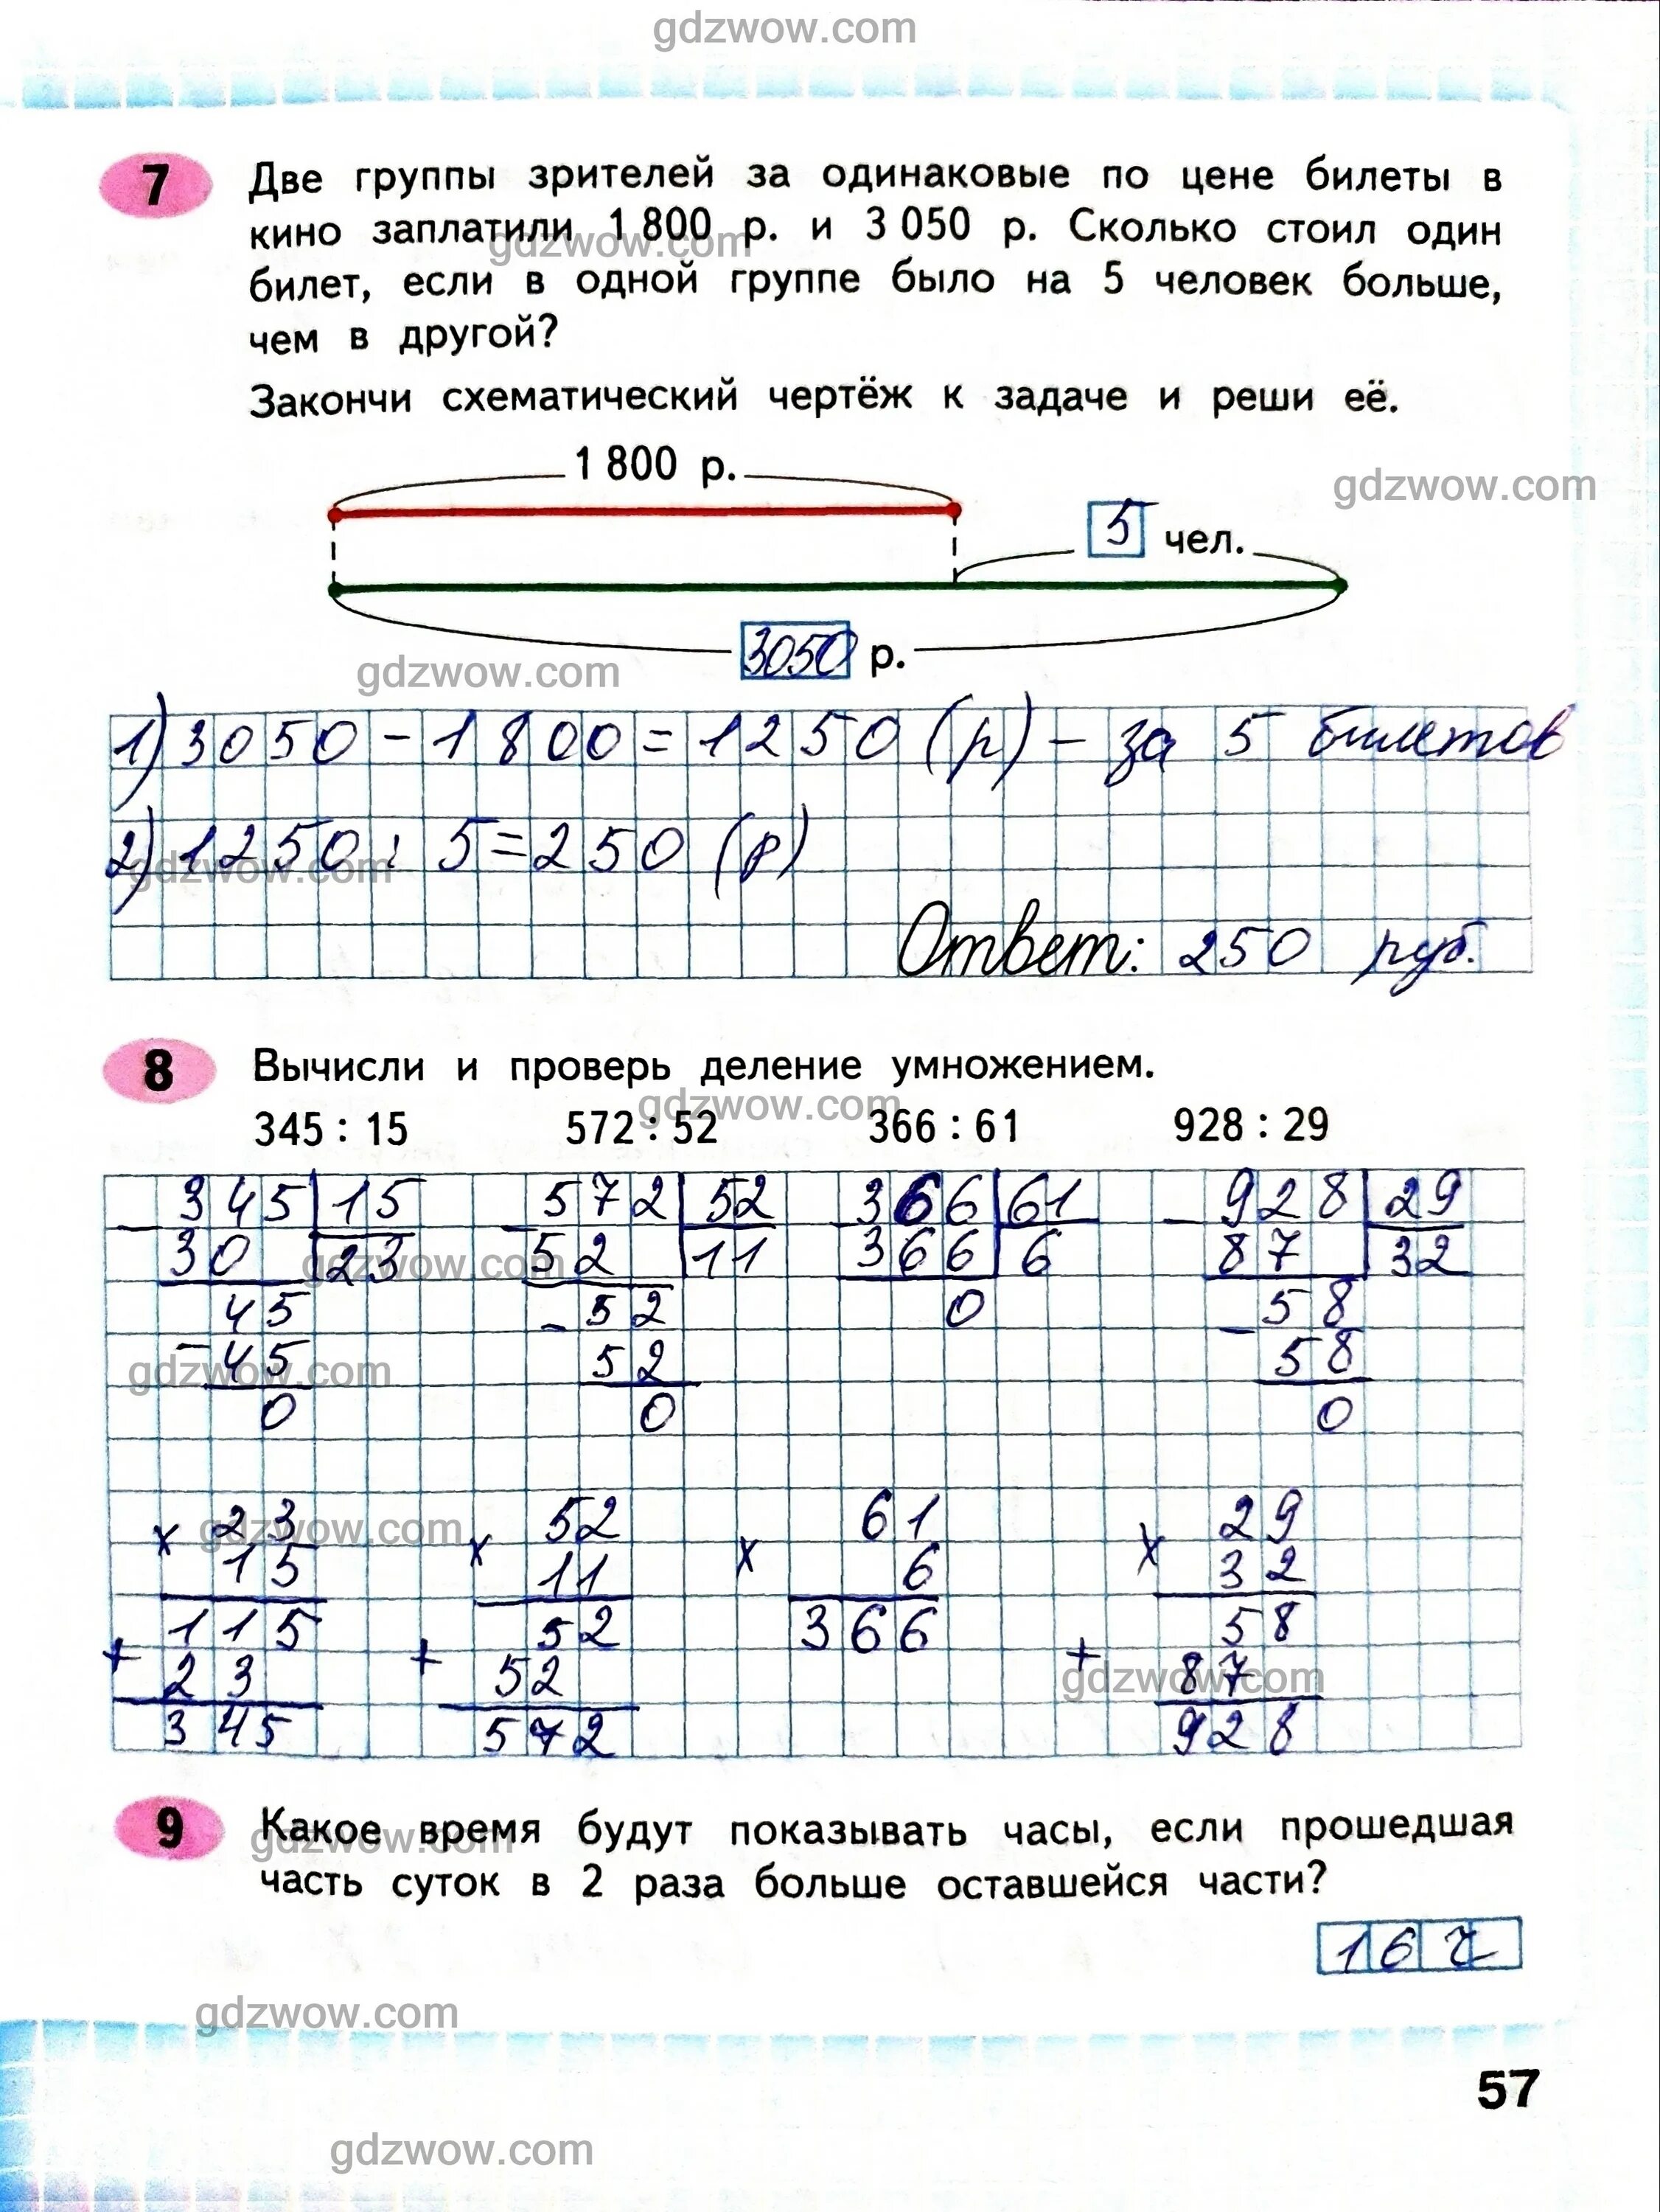 gdzwow.com
7 Две группы зрителей за одинаковые по цене билеты в
кино заплатили 1 800 р. и 3 050 р. Сколько стоил один
gdzwow.com
билет, если в одной группе было на 5 человек больше,
чем в другой?
Закончи схематический чертёж к задаче и реши её.
1 800 р.
gdzwow.com
5 чел.
3050 р.
gdzwow.com
1) 3050 - 1800 = 1250 (р) - за 5 билетов
2) 1250 : 5 = 250 (р)
gdzwow.com
Ответ: 250 руб.
8 Вычисли и проверь деление умножением.
gdzwow.com
345 : 15 572 : 52 366 : 61 928 : 29
- 345 | 15 - 572 | 52 - 366 | 61 - 928 | 29
30 23 52 11 366 6 87 32
gdzwow.com
45 - 52 0 - 58
- 45 52 58
gdzwow.com
0 0 0
x 23 x 52 x 61 x 29
gdzwow.com
15 11 6 32
115 52 366 58
+ 23 + 52 + 87
gdzwow.com
345 572 928
9 Какое время будут показывать часы, если прошедшая
gdzwow.com
часть суток в 2 раза больше оставшейся части?
16 ч
gdzwow.com
57
gdzwow.com